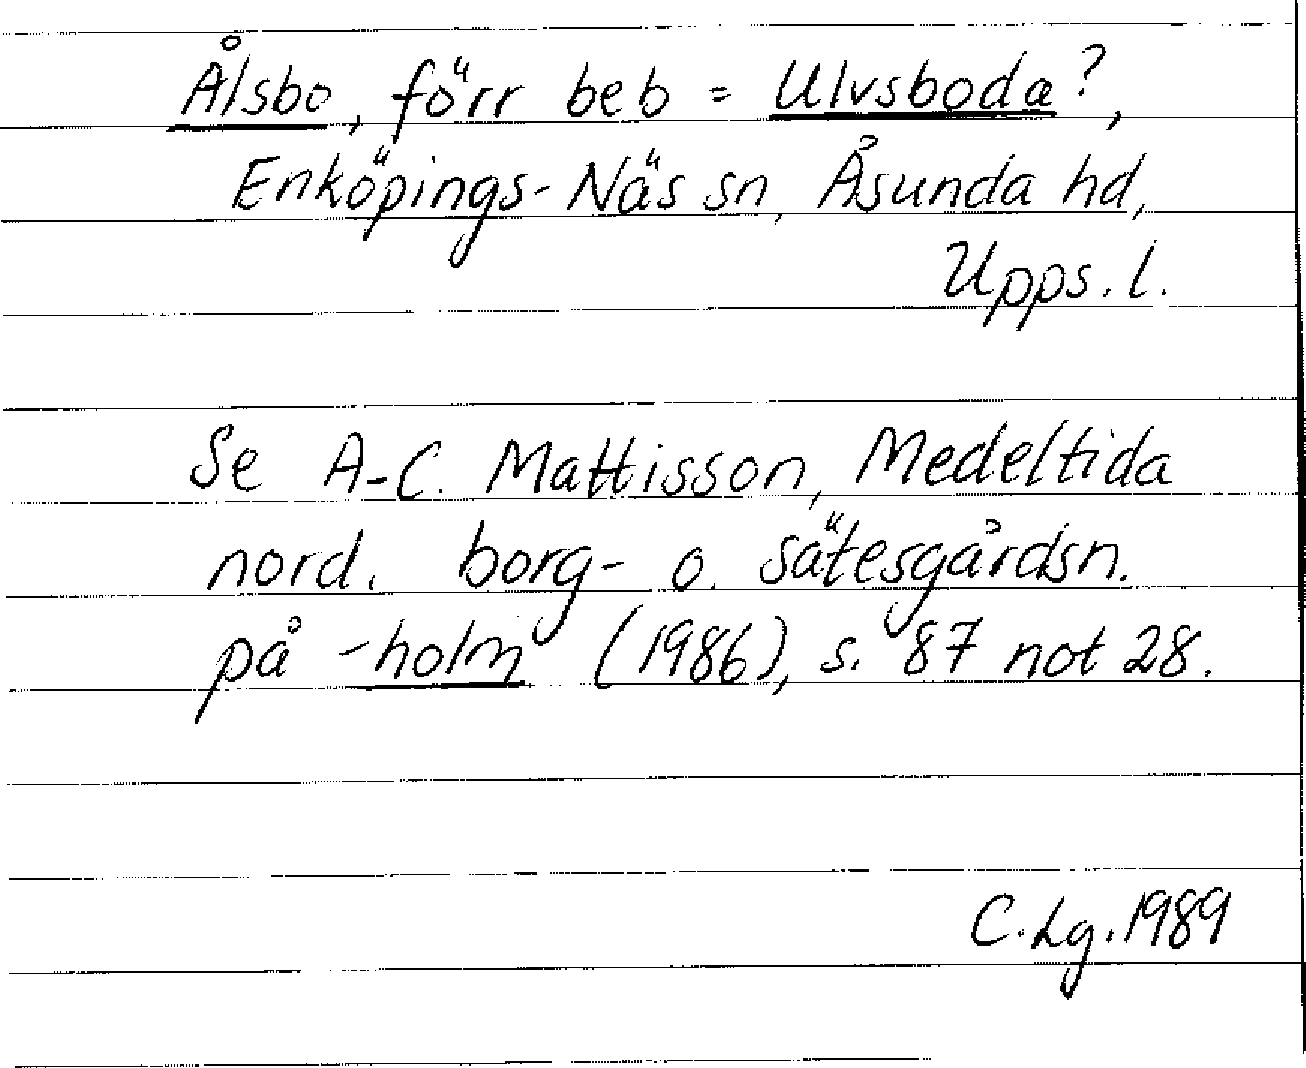 Ålsbo, förr beb = Ulvsboda?,
Enköpings-Näs sn, Åsunda hd,
Upps. l.
Se A-C. Mattisson, Medeltida
nord. borg- o. sätesgårdsn.
på -holm (1986), s. 87 not 28.
C. Lg. 1989